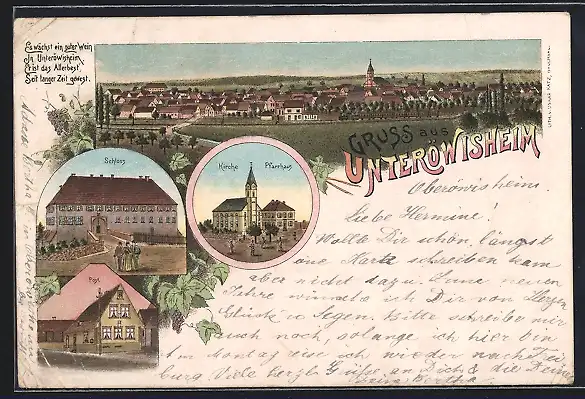 Es wächst ein guter Wein
In Unteröwisheim,
Er ist das Allerbest
Seit langer Zeit gewest.
GRUSS aus
UNTERÖWISHEIM
Schloss
Kirche Pfarrhaus
Post
Oberöwisheim.
Liebe Hermine!
Wollte Dir schön, längst
eine Karte schreiben kam
aber nicht dazu. Zum neuen
Jahre wünsche ich Dir von Herzen
Glück u. Segen. Bitte schreibe mir
auch noch, solange ich hier bin
Am Montag reise ich wieder nach
burg Viele herzl. Grüße an Dich & die Deinen
Bertha